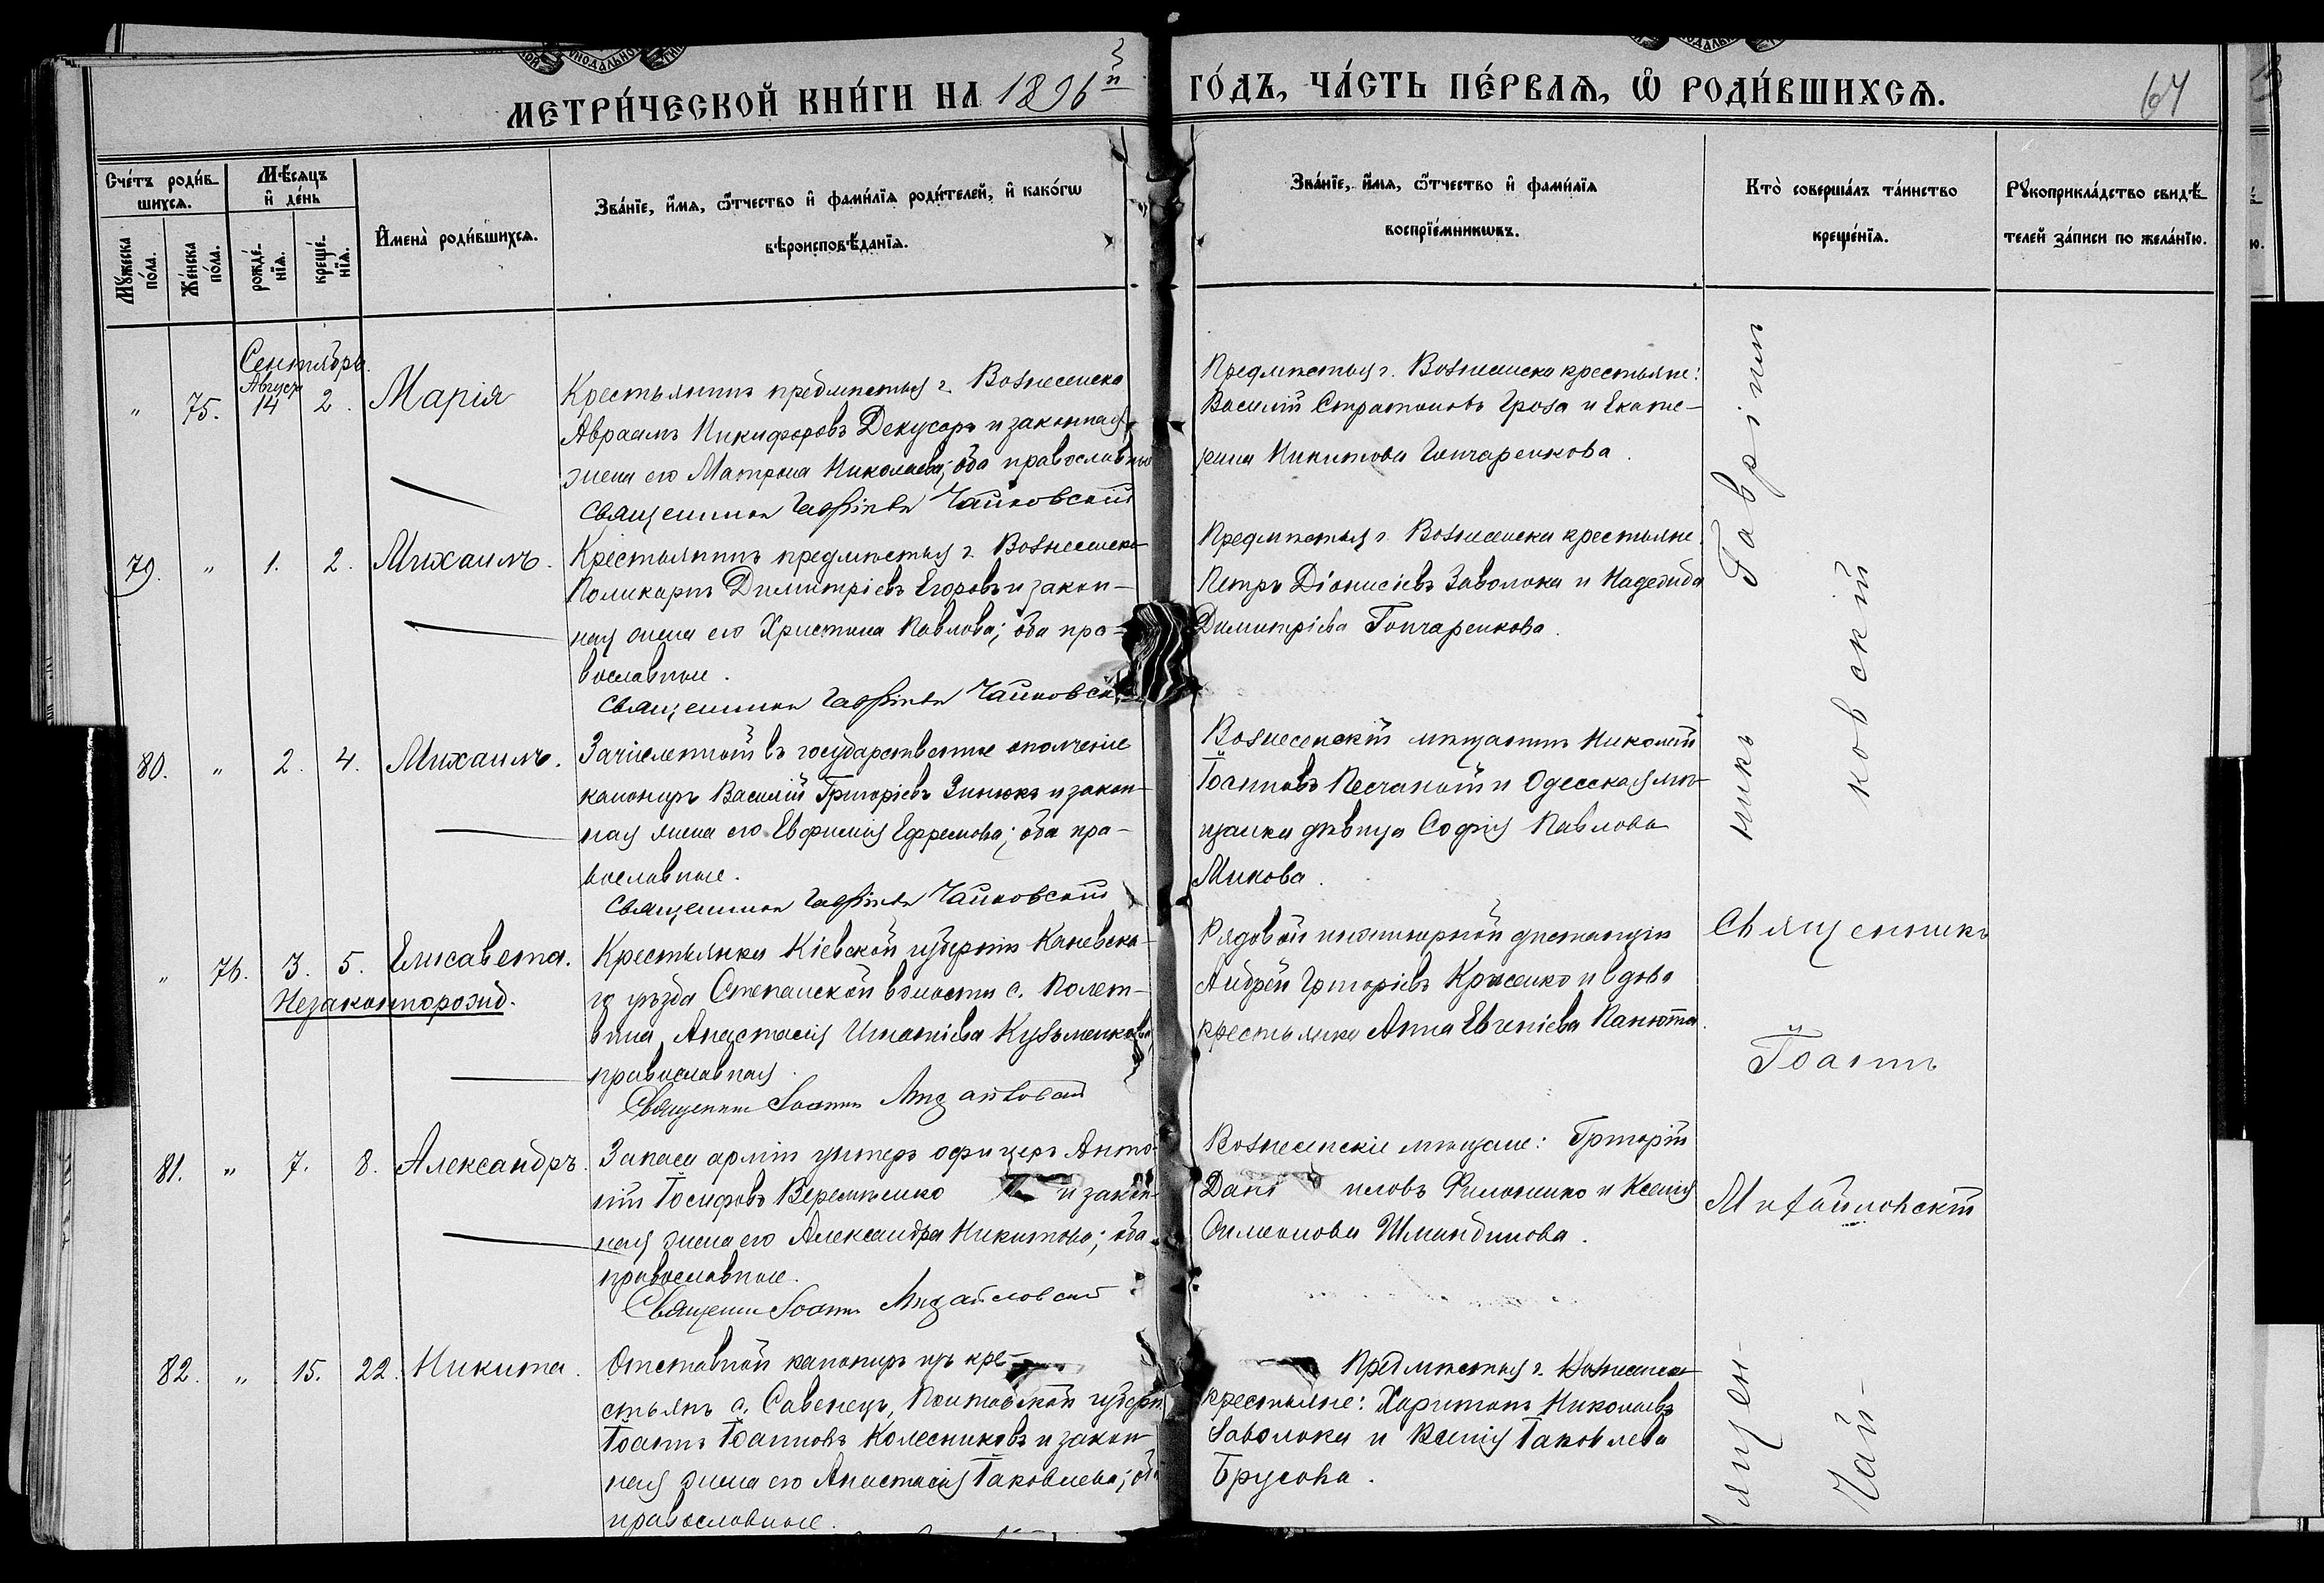 МЕТРИ́ЧЕСКОЙ КНИ́ГИ НА 1896й ГО́ДЪ, ЧА́СТЬ ПЕ́РВАѦ, Ѿ РОДИ́ВШИХСѦ.
64
Сче́тъ роди́в-
шихсѧ.
Мѣ́сяцъ
и҆ де́нь
Мꙋ́жеска
по́ла.
Же́нска
по́ла.
рожде́-
нїѧ.
креще́-
нїѧ.
И҆мена̀ роди́вшихсѧ.
Зва́нїе, и҆́мѧ, ѻ҆́тчество и҆ фами́лїѧ роди́телей, и҆ како́гѡ
вѣроисповѣ́данїѧ.
Зва́нїе, и҆́мѧ, ѻ҆́тчество и҆ фами́лїѧ
воспрїе́мникѡвъ.
Кто̀ соверша́лъ та́инство
креще́нїѧ.
Рꙋкоприкла́дство свидѣ́-
телей за́писи по жела́нїю.
Сентябрь.
Августа
" 75. 14 2. Марія
Крестьянинъ предмѣстья г. Вознесенска
Авраамъ Никифоровъ Декусаръ и законная
жена его Матрона Николаева; оба православные
Священникъ Гавріилъ Чайковскій
Предмѣстья г. Вознесенска крестьяне:
Василій Стратоновъ Гроза и Екате-
рина Никитова Гончаренкова.
79. " 1. 2. Михаилъ.
Крестьянинъ предмѣстья г. Вознесенска
Поликарпъ Димитріевъ Егоровъ и закон-
ная жена его Христина Павлова; оба пра-
вославные.
Священникъ Гавріилъ Чайковскій
Предмѣстья г. Вознесенска крестьяне:
Петръ Діонисіевъ Заволока и Надежда
Димитріева Гончаренкова.
80. " 2. 4. Михаилъ.
Зачисленный въ государственное ополченіе
канониръ Василій Григоріевъ Зинюкъ и закон-
ная жена его Евфимія Ефремова; оба пра-
вославные.
Священникъ Гавріилъ Чайковскій
Вознесенскій мѣщанинъ Николай
Іоанновъ Песчаный и Одесская мѣ-
щанка дѣвица Софія Павлова
Микова.
" 76. 3. 5. Елисавета.
Незаконнорожд.
Крестьянка Кіевской губерніи Каневска-
го уѣзда Степанской волости с. Полст-
вина, Анастасія Игнатіева Кузьменкова,
православная.
Священникъ Іоаннъ Михайловскій
Рядовой инженерной дистанціи
Андрей Григоріевъ Крисенко и вдова
крестьянка Анна Евгеніева Панюта.
81. " 7. 8. Александръ.
Запаса арміи унтеръ офицеръ Анто-
ній Іосифовъ Веремѣенко и закон-
ная жена его Александра Никитова; оба
православные.
Священникъ Іоаннъ Михайловскій
Вознесенскіе мѣщане: Григорій
Даніиловъ Филоненко и Ксенія
Симеонова Шминдикова.
82. " 15. 22. Никита.
Отставной канониръ изъ кре-
стьянъ с. Савенецъ, Полтавской губерніи
Іоаннъ Іоанновъ Колесниковъ и закон-
ная жена его Анастасія Іаковлева; оба
православные.
Предмѣстья г. Вознесенска
крестьяне: Харитонъ Николаевъ
Заволока и Ксенія Іаковлева
Брусова.
никъ Гавріилъ
ковскій
Священникъ
Іоаннъ
Михайловскій
ящен-
Чай-